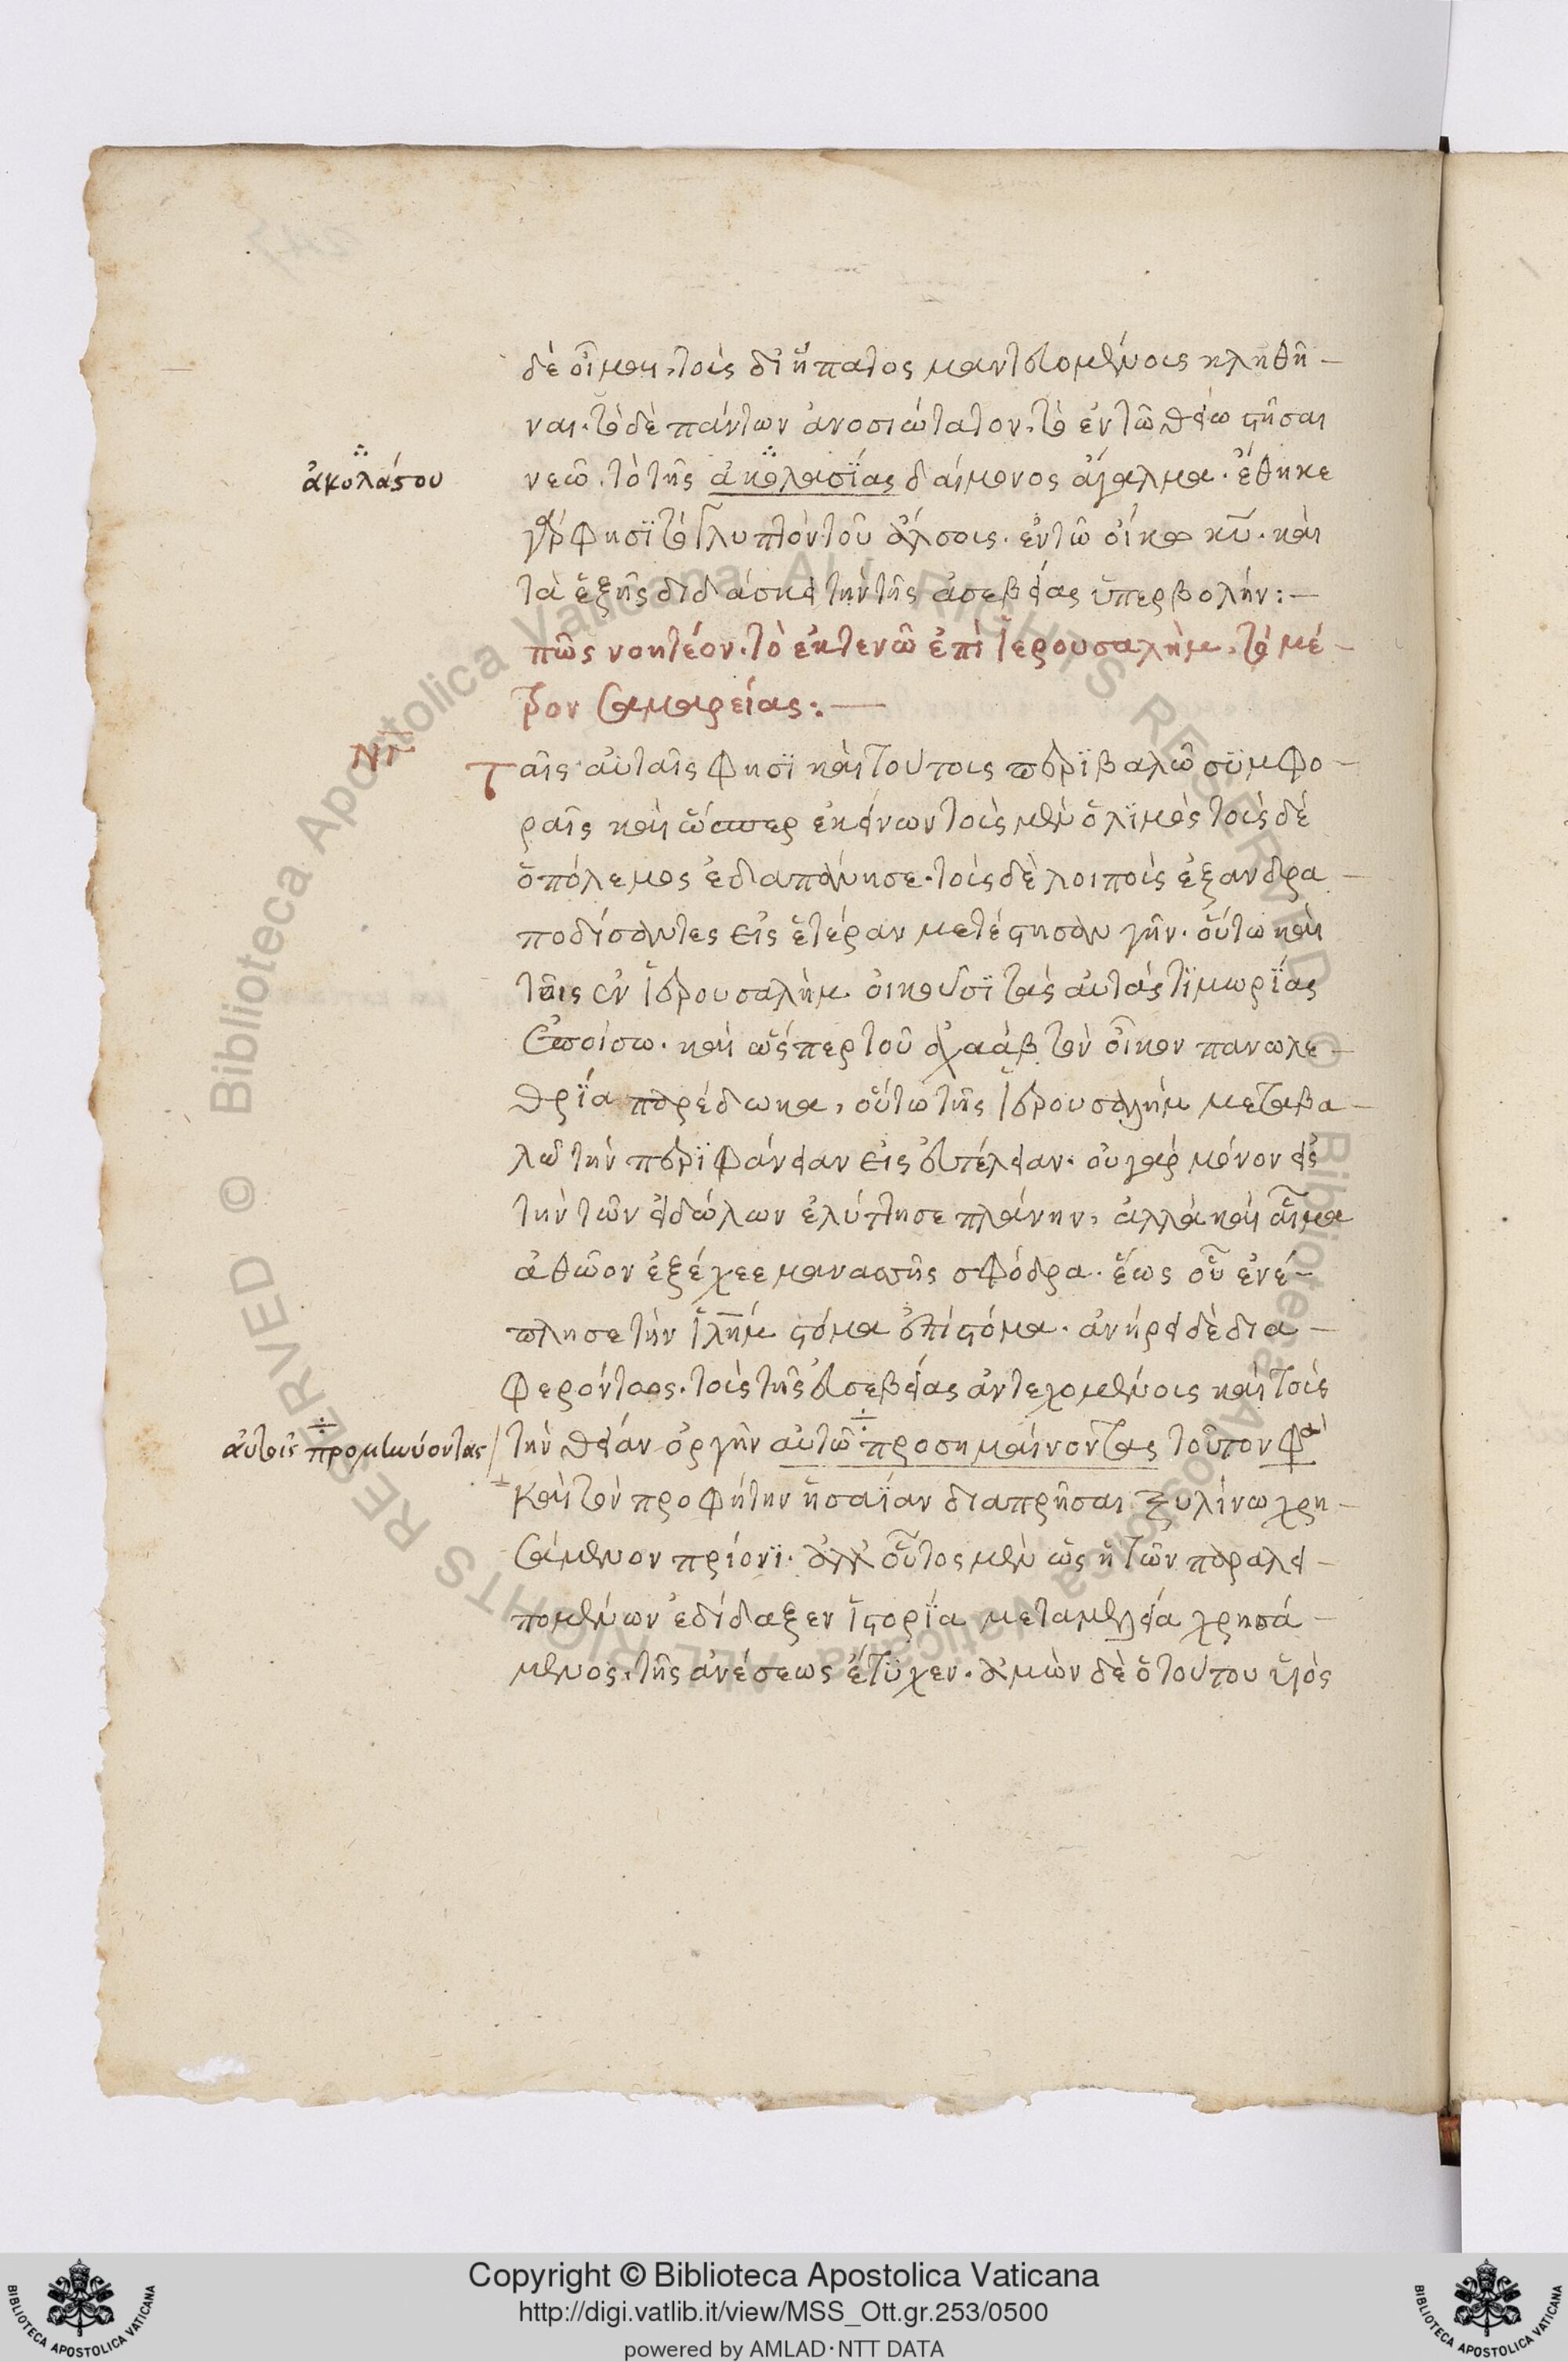 δὲ οἶμαι, τοῖς δι ἥπατος μαντευομένοις κληθῆ-
ναι. τὸ δὲ πάντων ἀνοσιώτατον, τὸ ἐν τῶ θείω στῆσαι
ἀκολάστου
νεῶ, τὸ τῆς ἀκολασΐας δαίμονος ἄγαλμα. ἔθηκε
γάρ φησϊ τὸ γλυπτὸν τοῦ ἄλσους. ἐν τῶ οἴκω κυ. καὶ
τὰ ἑξῆς διδάσκει τὴν τῆς ἀσεβείας ὑπερβολήν:—
πῶς νοητέον. τὸ ἐκτενῶ ἐπὶ ἱερουσαλὴμ, τὸ μέ-
τρον σαμαρείας:—
ΝΓ
Ταῖς αὐταῖς φησϊ καὶ τούτοις περϊβαλῶ συμφο-
ραῖς καὶ ὥσπερ ἐκείνων τοὺς μὲν ὁ λϊμὸς τοὺς δὲ
ὁ πόλεμος ἐδαπάνησε. τοὺς δὲ λοιποὺς ἐξανδρα-
ποδίσαντες εἰς ἑτέραν μετέστησαν γῆν. οὕτω καὶ
τοῖς ἐν ἱερουσαλὴμ οἰκοῦσϊ τὰς αὐτὰς τϊμωρΐας
ἐποίσω. καὶ ὥσπερ τοῦ ἀχαὰβ τὸν οἶκον πανωλε-
θρΐα παρέδωκα, οὕτω τῆς ἱερουσαλὴμ μεταβα-
λῶ τὴν περϊφάνειαν εἰς εὐτέλειαν. οὐ γὰρ μόνον εἰς
τὴν τῶν εἰδώλων ἐλύττησε πλάνην, ἀλλὰ καὶ αἷμα
ἀθῶον ἐξέχεε μανασσῆς σφόδρα. ἕως οὗ ἐνέ-
πλησε τὴν ἱλημ στόμα ἐπὶ στόμα. ἀνήρει δὲ δια-
φερόντως. τοὺς τῆς εὐσεβείας ἀντεχομένους καὶ τοὺς
αὐτοῖς προμηνύοντας
τὴν θείαν ὀργὴν αὐτῶ προσημαίνοντας τοῦτον φα
καὶ τὸν προφήτην ἡσαΐαν διαπρῆσαι ξυλίνω χρη-
σάμενον πρίονϊ. ἀλλ οὗτος μὲν ὡς ἡ τῶν παραλει-
πομένων ἐδίδαξεν ἱστορΐα μεταμελεία χρησά-
μενος, τῆς ἀνέσεως ἔτυχεν. ἀμὼν δὲ ὁ τούτου υἱὸς
Copyright © Biblioteca Apostolica Vaticana
http://digi.vatlib.it/view/MSS_Ott.gr.253/0500
powered by AMLAD·NTT DATA
BIBLIOTECA APOSTOLICA VATICANA
BIBLIOTECA APOSTOLICA VATICANA
© Biblioteca Apostolica Vaticana ALL RIGHTS RESERVED
© Biblioteca Apostolica Vaticana ALL RIGHTS RESERVED